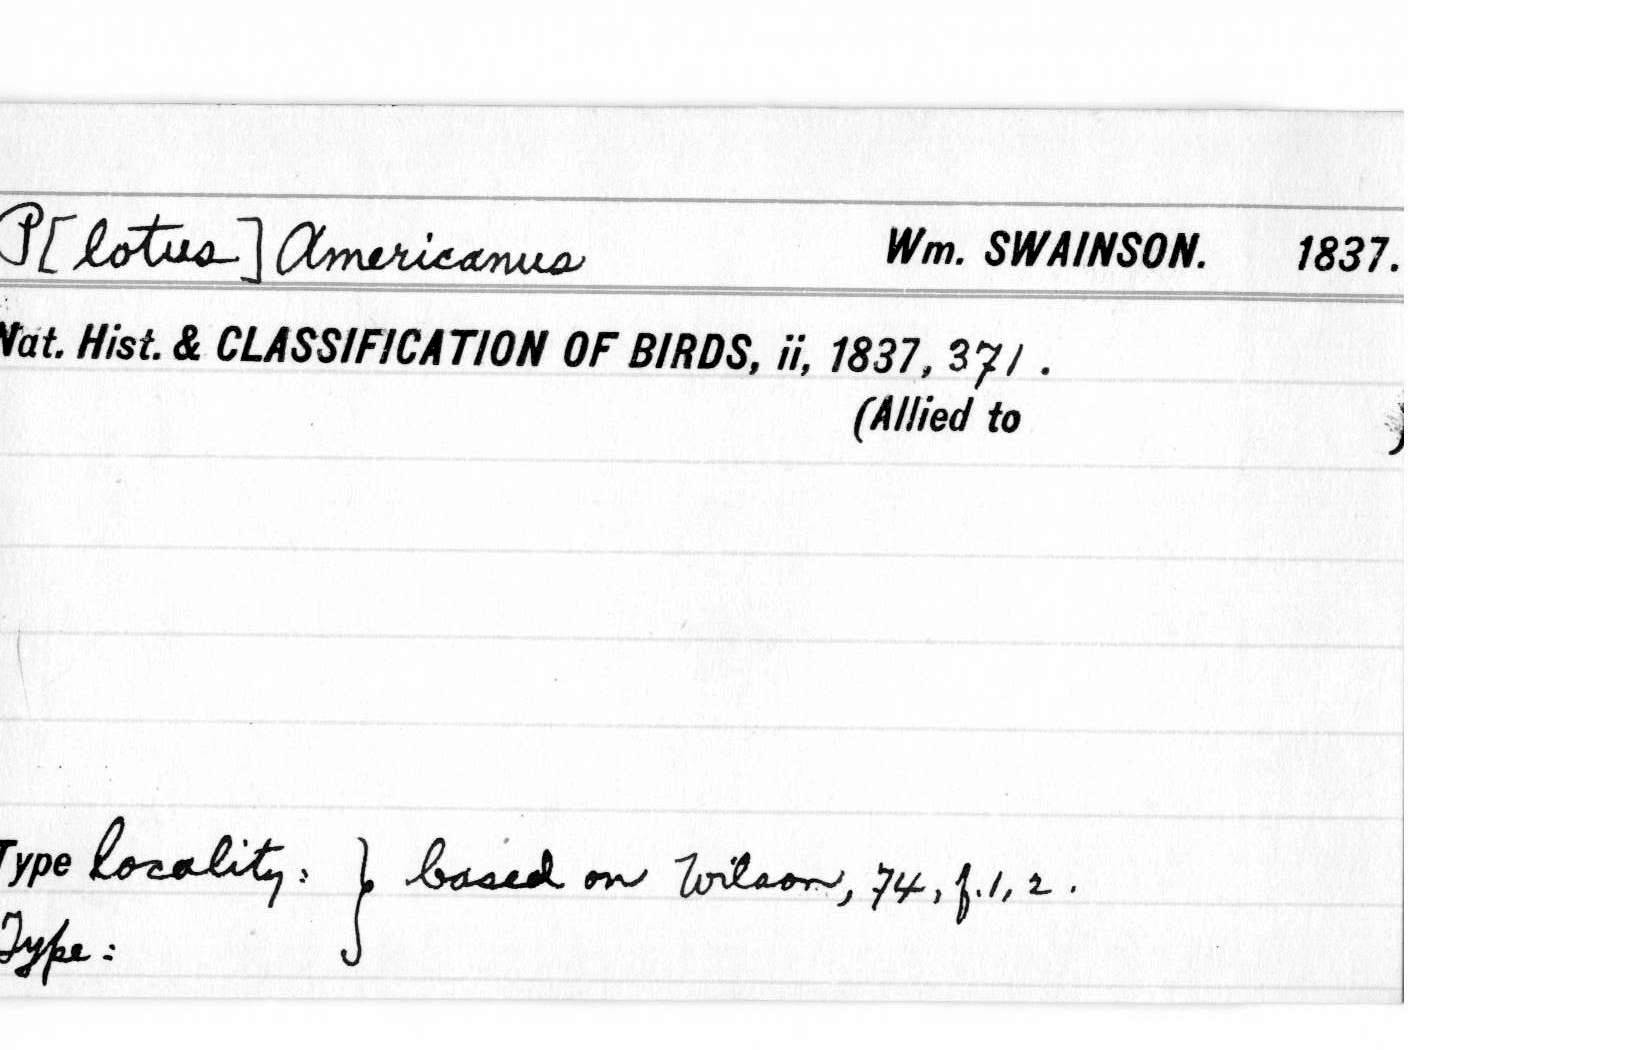 P[lotus] Americanus Wm. SWAINSON. 1837.
Nat. Hist. & CLASSIFICATION OF BIRDS, ii, 1837, 371.
(Allied to )
Type Locality: } based on Wilson, 74, f. 1, 2.
Type: